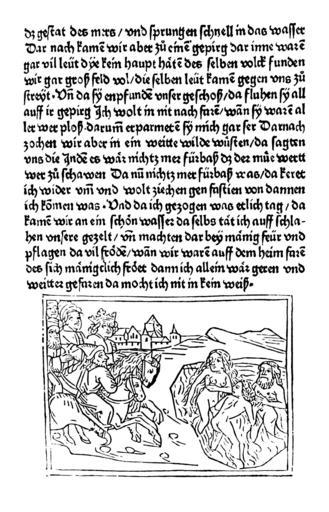 dz gestat des mers / vnd sprungen schnell in das wasser
Dar nach kamē wir aber zů einē gepirg dar inne warē
gar vil leüt dye kein haupt hătē des selben volck funden
wir gar groß feld vol / die selben leüt kamē gegen vns zů
streyt · Vn̄ da sy enpfundē vnser geschoß / da fluhen sy all
auff ir gepirg Ich wolt in nit nach farē / wan̄ sy warē al
ler wer ploß darum̄ erparmetē sy mich gar ser Darnach
zochen wir aber in ein weitte wilde wůsten / da sagten
vns die Inde es wăr nichtz mer fürbaß dz der můe wert
wer zů schawen Da nū nichtz mer fürbaß was / da keret
ich wider vm̄ vnd wolt ziechen gen fastien von dannen
ich kömen was · Vnd da ich gezogen was etlich tag / da
kame wir an ein schön wasser da selbs tăt ich auff schla-
hen vnsere gezelt / vn̄ machten dar bey mănig feür vnd
pflagen da vil frödē / wan̄ wir warē auff dem heim farē
des sich mănigelich frödet dann ich allein wăr geren vnd
weitter gefaren da mocht ich nit in kein weiß·